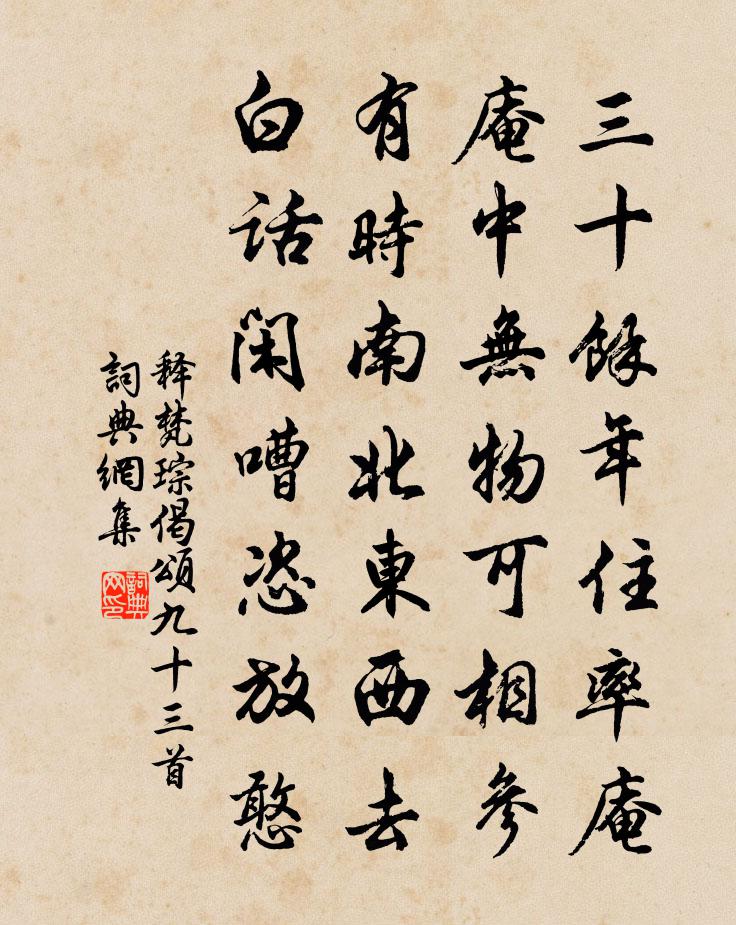 三十餘年住率庵
庵中無物可相參
有時南北東西去
白話閑嘈恣放憨
释梵琮偈頌九十三首
詞典網集
詞典网印